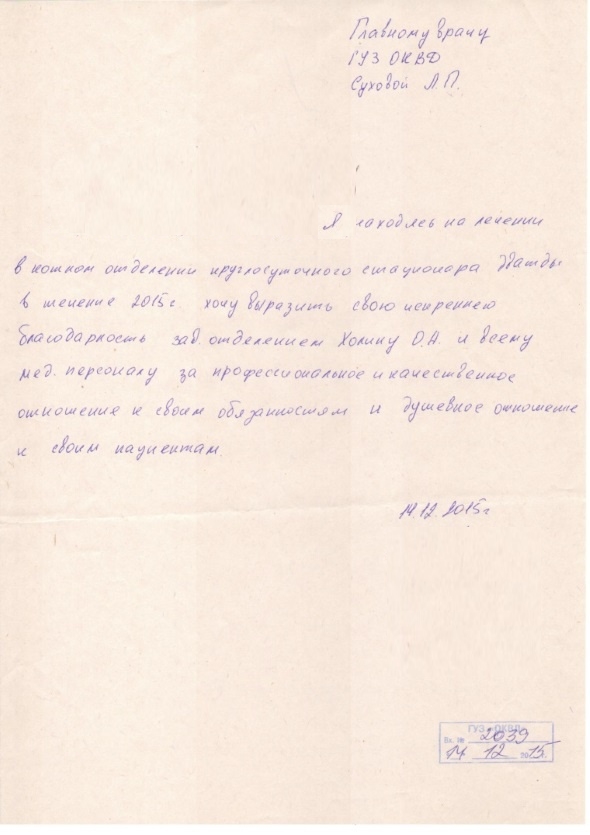 Главному врачу
ГУЗ ОКВД
Суховой Л.П.
Я находясь на лечении
в кожном отделении круглосуточного стационара дважды
в течение 2015 г. хочу выразить свою искреннею
благодарность зав. отделением Холину О.А. и всему
мед. персоналу за профессиональное и качественное
отношение к своим обязанностям и душевное отношение
к своим пациентам.
14.12.2015 г
ГУЗ «ОКВД»
Вх. № 2039
14 12 2015г.